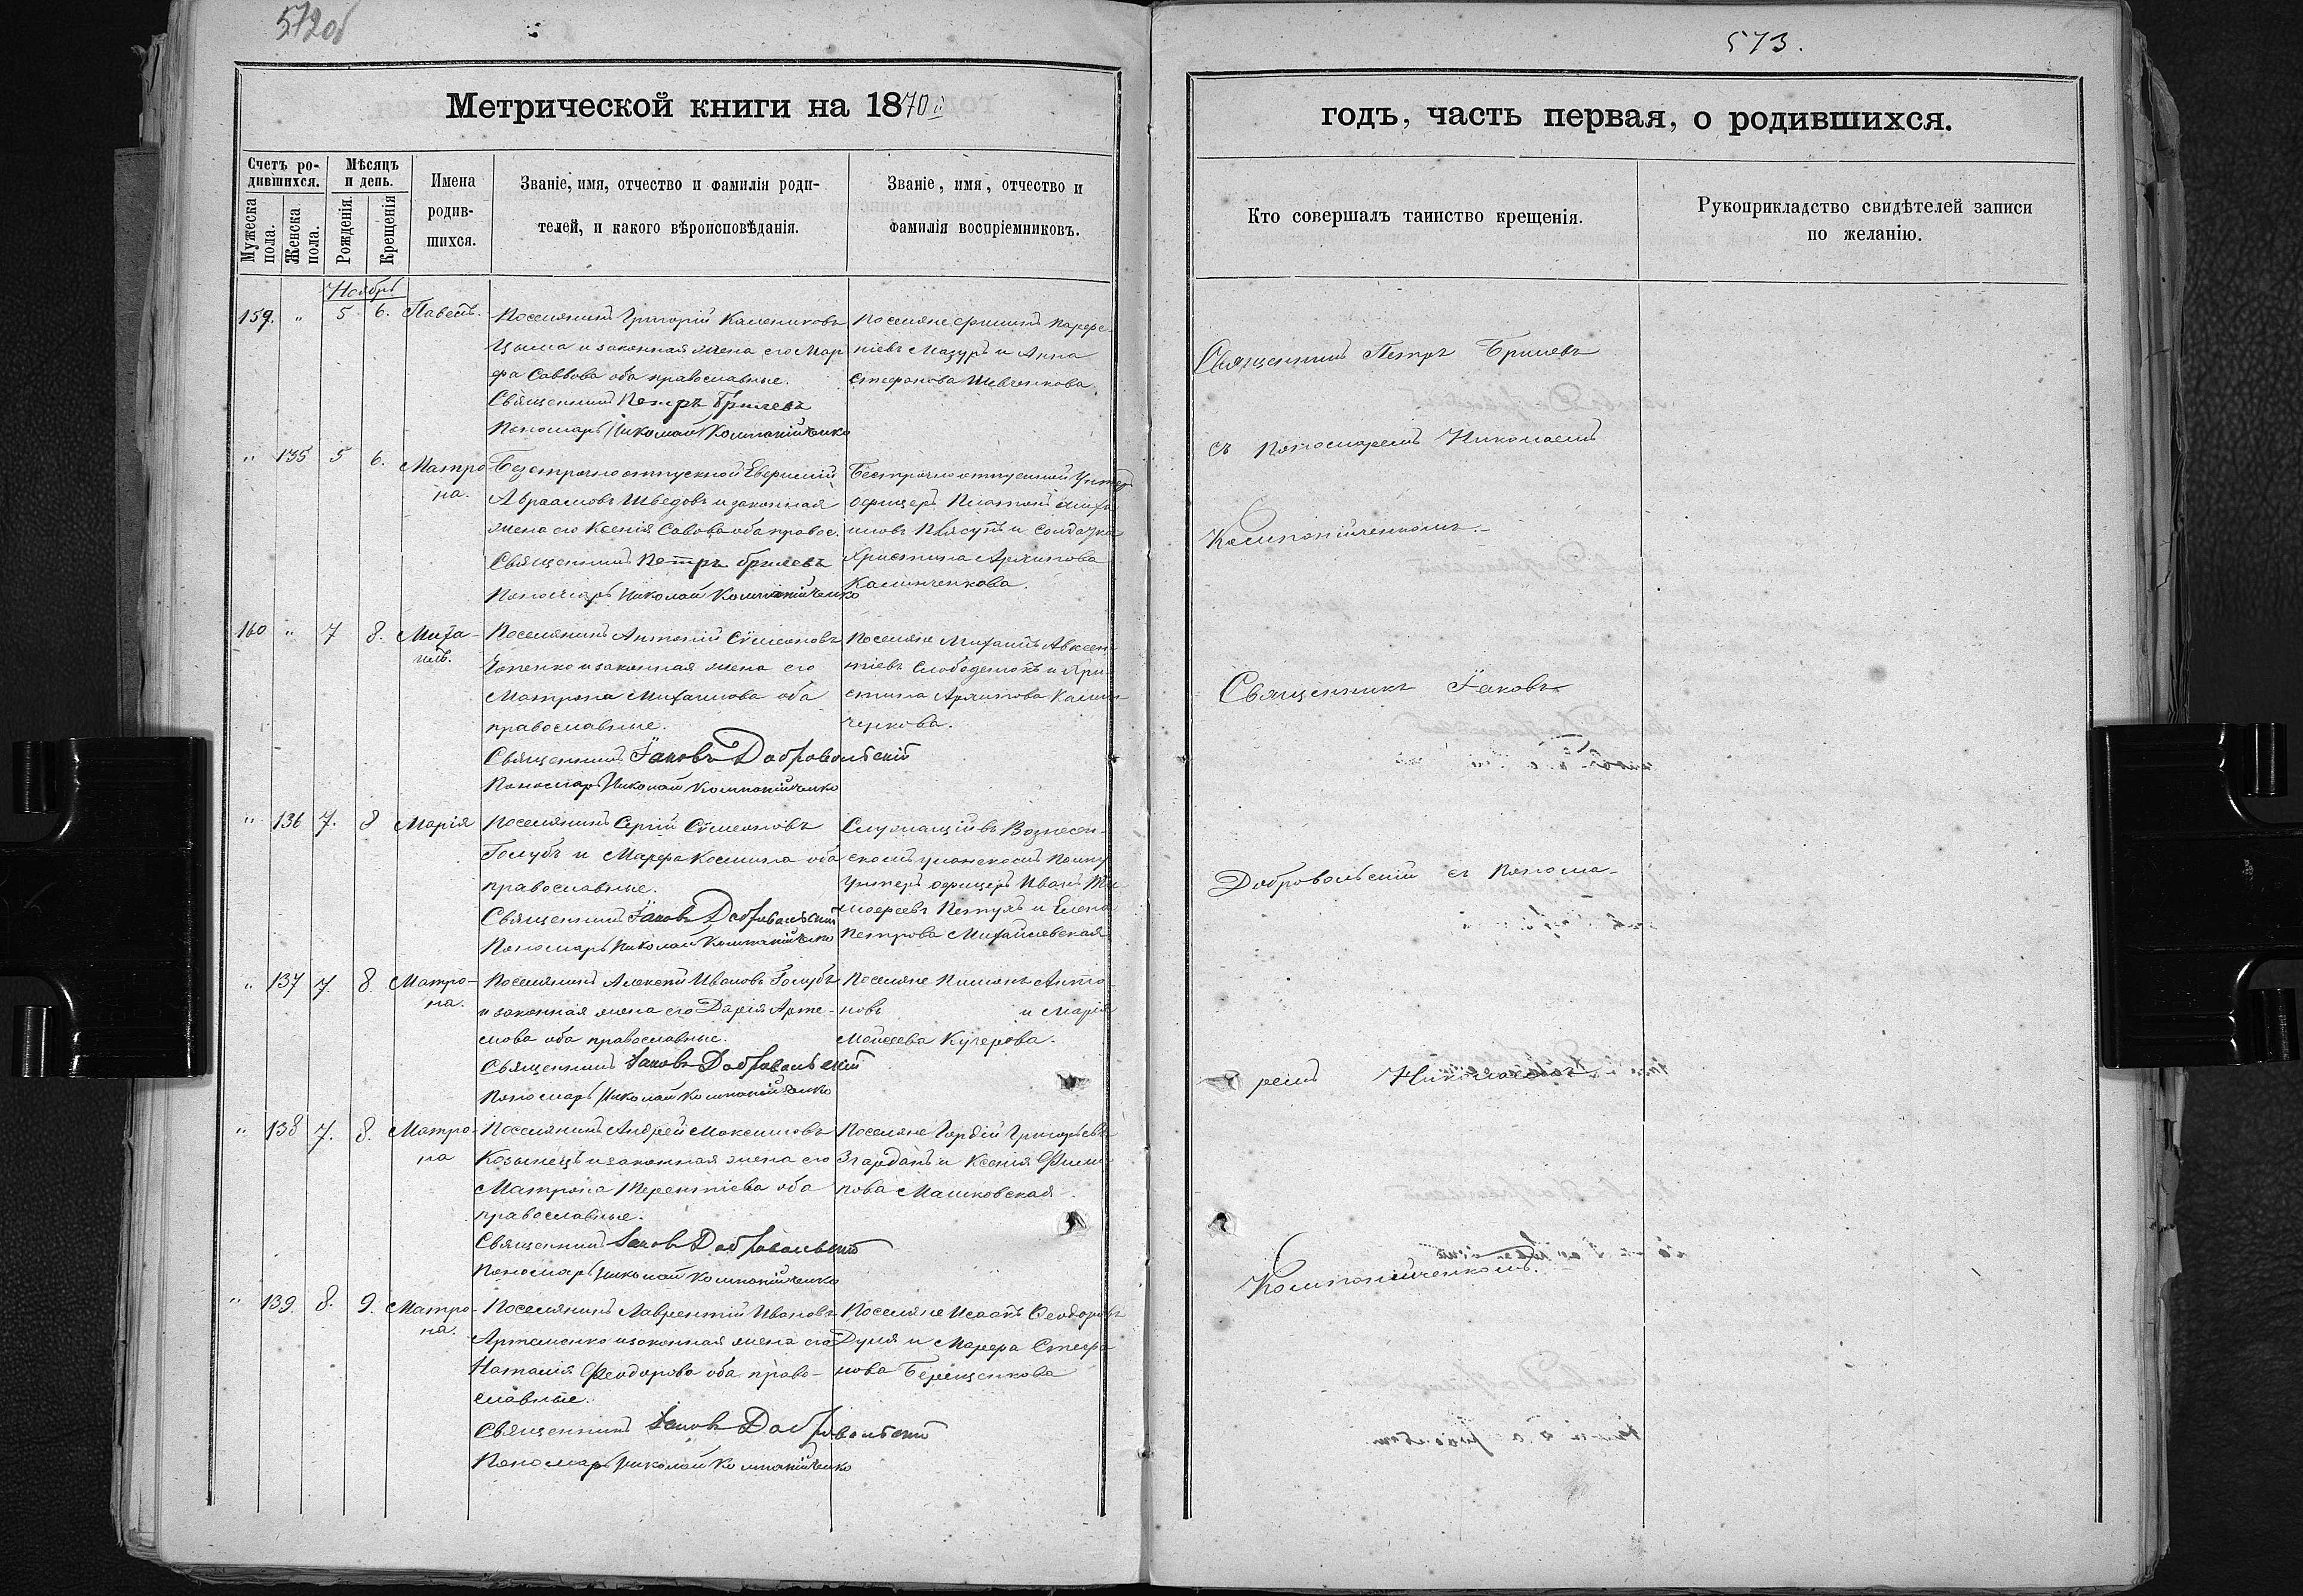 572об
573.
Метрической книги на 1870й
годъ, часть первая, о родившихся.
Счетъ ро-
дившихся.
Мужеска пола.
Женска пола.
Мѣсяцъ
и день.
Рожденія.
Крещенія
Имена
родив-
шихся.
Званіе, имя, отчество и фамилія роди-
телей, и какого вѣроисповѣданія.
Званіе, имя, отчество и
фамилія воспріемниковъ.
Кто совершалъ таинство крещенія.
Рукоприкладство свидѣтелей записи
по желанію.
Ноябрь
159. " 5 6. Павелъ.
Поселянинъ Григорій Калениковъ
Цыма и законная жена его Мар
фа Саввова оба православные.
Священникъ Петръ Брилевъ
Пономарь Николай Компанійченко
Поселяне Парфе-
ніевъ Мазуръ и Анна
Стефанова Шевченкова
" 135 5 6. Матро
на.
Безсрочноотпускной Евфимій
Авраамовъ Шведовъ и законная
жена его Ксенія Савова оба правос.
Священникъ Петръ Брилевъ
Пономарь Николай Компанійченко
Унтеръ
офицеръ Платонъ
и Солдатка
Христина Архипова
Калинченкова.
160 " 7 8. Миха-
илъ.
Поселянинъ Антоній Сѵмеоновъ
и законная жена его
Матрона Михаилова оба
православные.
Священникъ Іаковъ Добровольскій
Пономарь Николай Компанійченко
Поселяне Михаилъ Авксен
тіевъ Слободенюкъ и Хри-
стина Архипова Калин
ченкова.
" 136 7. 8 Марія
Поселянинъ Сергій Сѵмеоновъ
Голубъ и Марфа Косьмина оба
православные.
Священникъ Іаковъ Добровольскій
Пономарь Николай Компанійченко
Служащій въ Вознесен-
скомъ уланскомъ полку
Унтеръ офицеръ Иванъ Ти
мофеевъ Петухъ и Елена
Петрова Михайлевская
" 137 7. 8. Матро-
на.
Поселянинъ Алексей Ивановъ Голубъ
и законная жена его Дарія Арте-
мова оба православные.
Священникъ Іаковъ Добровольскій
Пономарь Николай Компанійченко
Поселяне Пименъ Анто-
новъ и Марія
Мойсеева Кучерова.
" 138 7. 8. Матро-
на
Поселянинъ Андрей Максимовъ
Козынецъ и законная жена его
Матрона Терентіева оба
православные.
Священникъ Іаковъ Добровольскій
Пономарь Николай Компанійченко
Поселяне Гордій Григорьевъ
Згарданъ и Ксенія Фили-
пова Машковская
" 139. 8. 9. Матро-
на.
Поселянинъ Лаврентій Ивановъ
Артеменко и законная жена его
Наталія Феодорова оба право-
славные.
Священникъ Іаковъ Добровольскій
Пономарь Николай Компанійченко
Поселяне Исаакъ Феодоровъ
и Марфа Стефа
нова Берещенкова
Священникъ Петръ Брилевъ
съ пономаремъ Николаемъ
Компанійченкомъ.
Священникъ Іаковъ
Добровольскій съ понома-
ремъ Николаемъ
Компанійченкомъ.